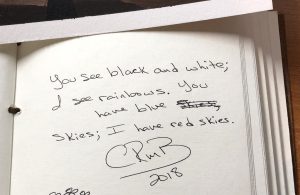 You see black and white;
I see rainbows. You
have blue
skies; I have red skies.
2018